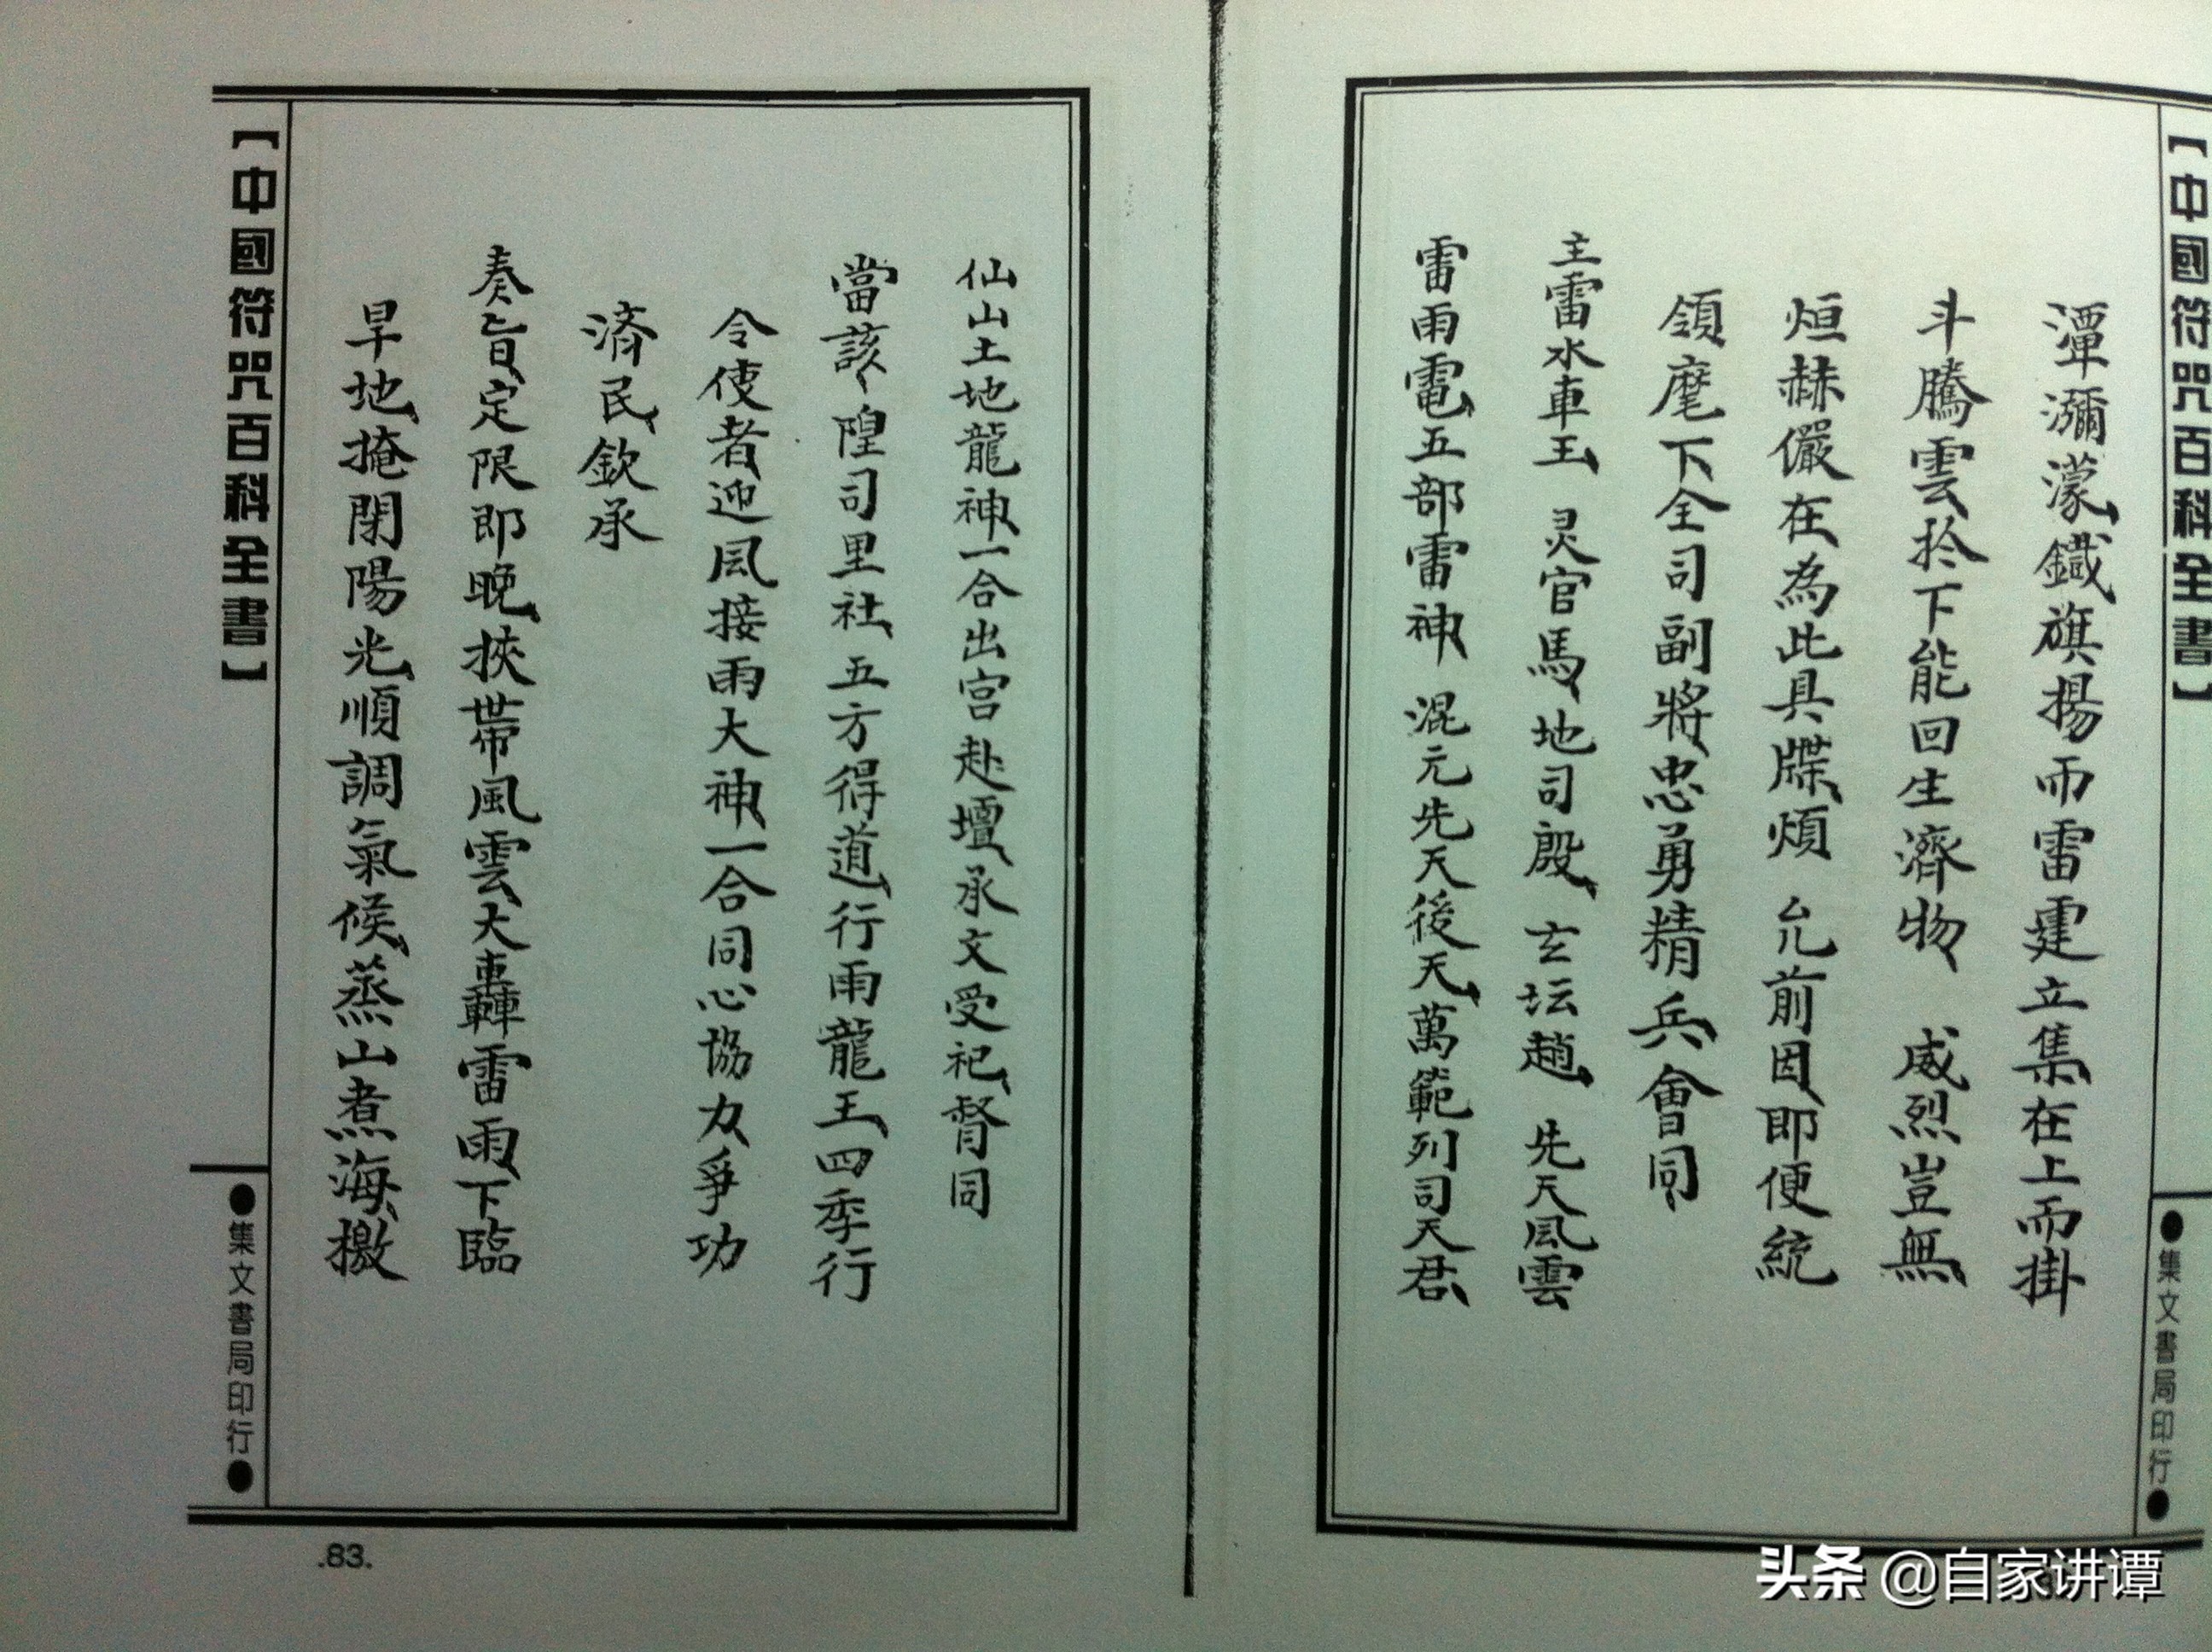 【中國符咒百科全書】
●集文書局印行●
潭瀰濛鐵旗揚而雷霆立集在上而掛
斗騰雲扵下能回生濟物　威烈豈無
烜赫儼在為此具牒煩　允前因即便統
領麾下全司副將忠勇精兵會同
主雷水車王　灵官馬　地司殷　玄坛趙　先天風雲
雷雨電五部雷神　混元先天後天萬範列司天君
仙山土地龍神一合出宮赴壇承文受祀督同
當該隍司里社　五方得道行雨龍王四季行
令使者迎風接雨大神一合同心協力爭功
済民欽承
奏旨定限即晚挾帶風雲大轟雷雨下臨
旱地掩閉陽光順調氣候蒸山煮海檄
【中國符咒百科全書】
●集文書局印行●
.83.
头条 @自家讲谭